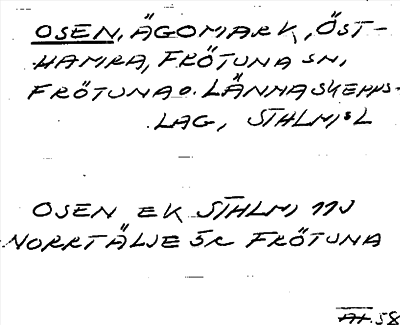 OSEN, ÄGOMARK, ÖST-
HAMRA, FRÖTUNA SN,
FRÖTUNA O. LÄNNA SKEPPS-
LAG, STHLMS L
OSEN EK STHLM 11J
NORRTÄLJE SR FRÖTUNA
58